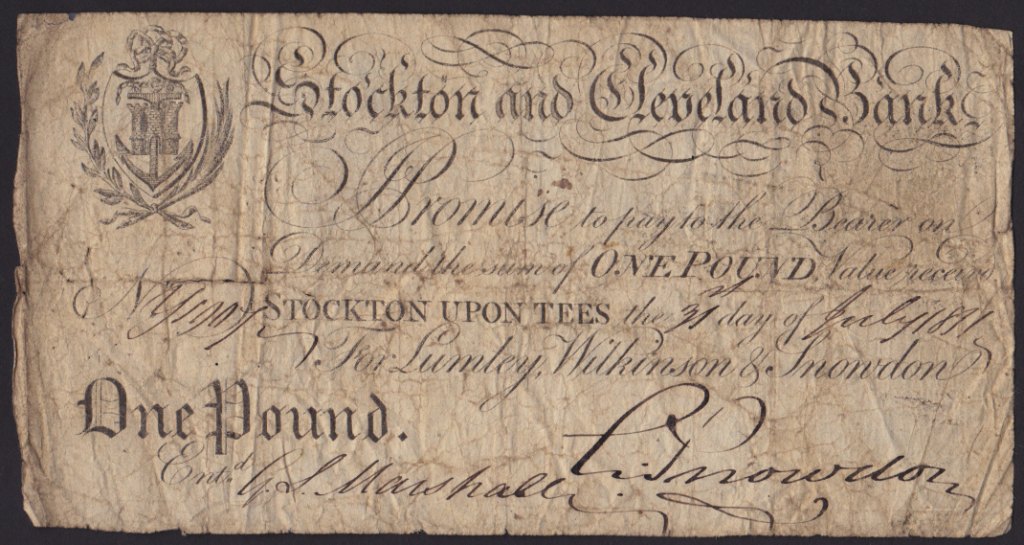 Stockton and Cleveland Bank
I Promise to pay to the Bearer on
Demand the sum of ONE POUND Value receivd
STOCKTON UPON TEES the 31st day of July 1811
For Lumley, Wilkinson & Snowdon
One Pound.
Entd. G. S. Marshall Snowdon